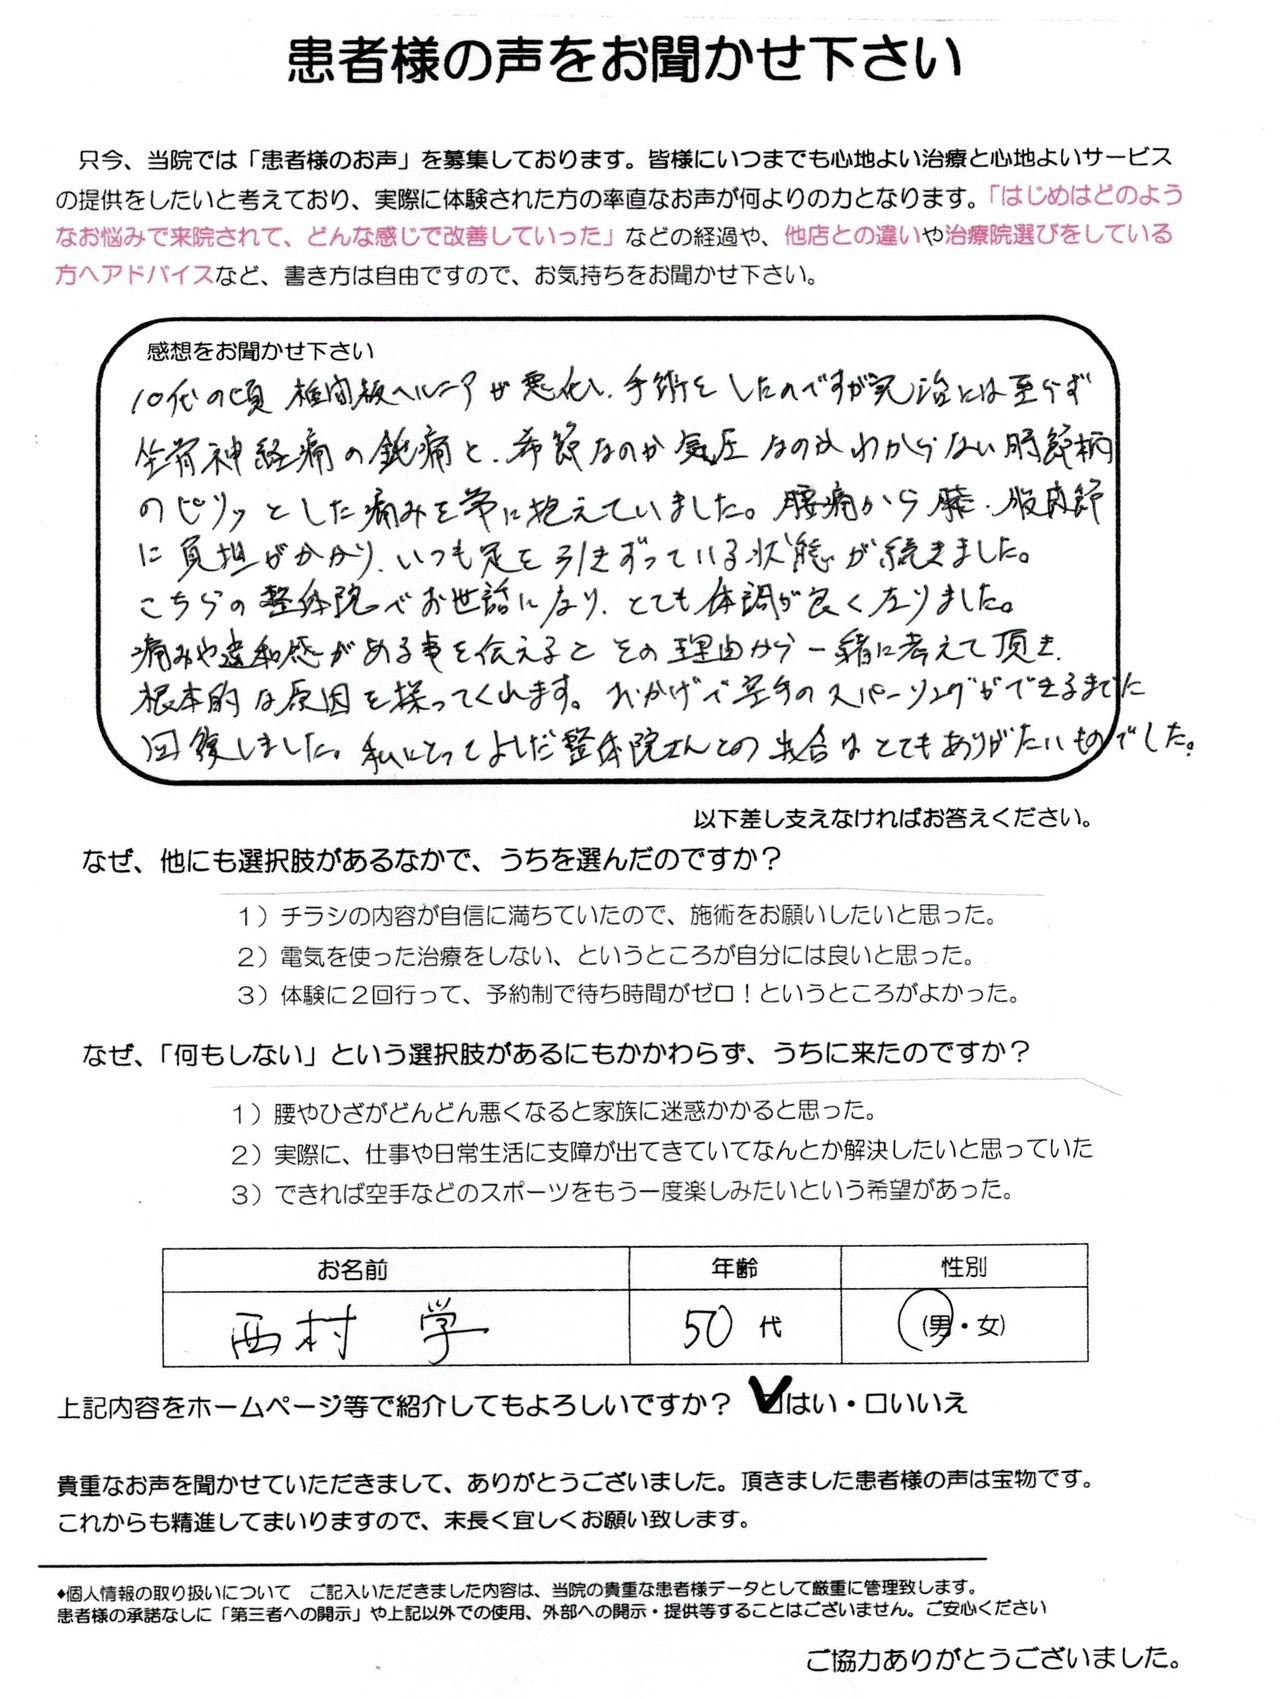 患者様の声をお聞かせ下さい
只今、当院では「患者様のお声」を募集しております。皆様にいつまでも心地よい治療と心地よいサービス
の提供をしたいと考えており、実際に体験された方の率直なお声が何よりの力となります。「はじめはどのよう
なお悩みで来院されて、どんな感じで改善していった」などの経過や、他店との違いや治療院選びをしている
方へアドバイスなど、書き方は自由ですので、お気持ちをお聞かせ下さい。
感想をお聞かせ下さい
10代の頃 椎間板ヘルニアが悪化し、手術をしたのですが完治とは至らず
坐骨神経痛の鈍痛と、季節なのか気圧なのかわからない時節柄
のピリッとした痛みを常に抱えていました。腰痛から膝、股関節
に負担がかかり、いつも足を引きずっている状態が続きました。
こちらの整体院でお世話になり、とても体調が良くなりました。
痛みや違和感がある事を伝えるとその理由から一緒に考えて頂き、
根本的な原因を探ってくれます。おかげで空手のスパーリングができるまでに
回復しました。私にとってよしだ整体院さんとの出会はとてもありがたいものでした。
以下差し支えなければお答えください。
なぜ、他にも選択肢があるなかで、うちを選んだのですか？
1）チラシの内容が自信に満ちていたので、施術をお願いしたいと思った。
2）電気を使った治療をしない、というところが自分には良いと思った。
3）体験に２回行って、予約制で待ち時間がゼロ！というところがよかった。
なぜ、「何もしない」という選択肢があるにもかかわらず、うちに来たのですか？
1）腰やひざがどんどん悪くなると家族に迷惑かかると思った。
2）実際に、仕事や日常生活に支障が出てきていてなんとか解決したいと思っていた
3）できれば空手などのスポーツをもう一度楽しみたいという希望があった。
お名前 年齢 性別
西村 学 50 代 (男・女)
上記内容をホームページ等で紹介してもよろしいですか？ ☑はい・□いいえ
貴重なお声を聞かせていただきまして、ありがとうございました。頂きました患者様の声は宝物です。
これからも精進してまいりますので、末長く宜しくお願い致します。
◆個人情報の取り扱いについて　ご記入いただきました内容は、当院の貴重な患者様データとして厳重に管理致します。
患者様の承諾なしに「第三者への開示」や上記以外での使用、外部への開示・提供等することはございません。ご安心ください
ご協力ありがとうございました。